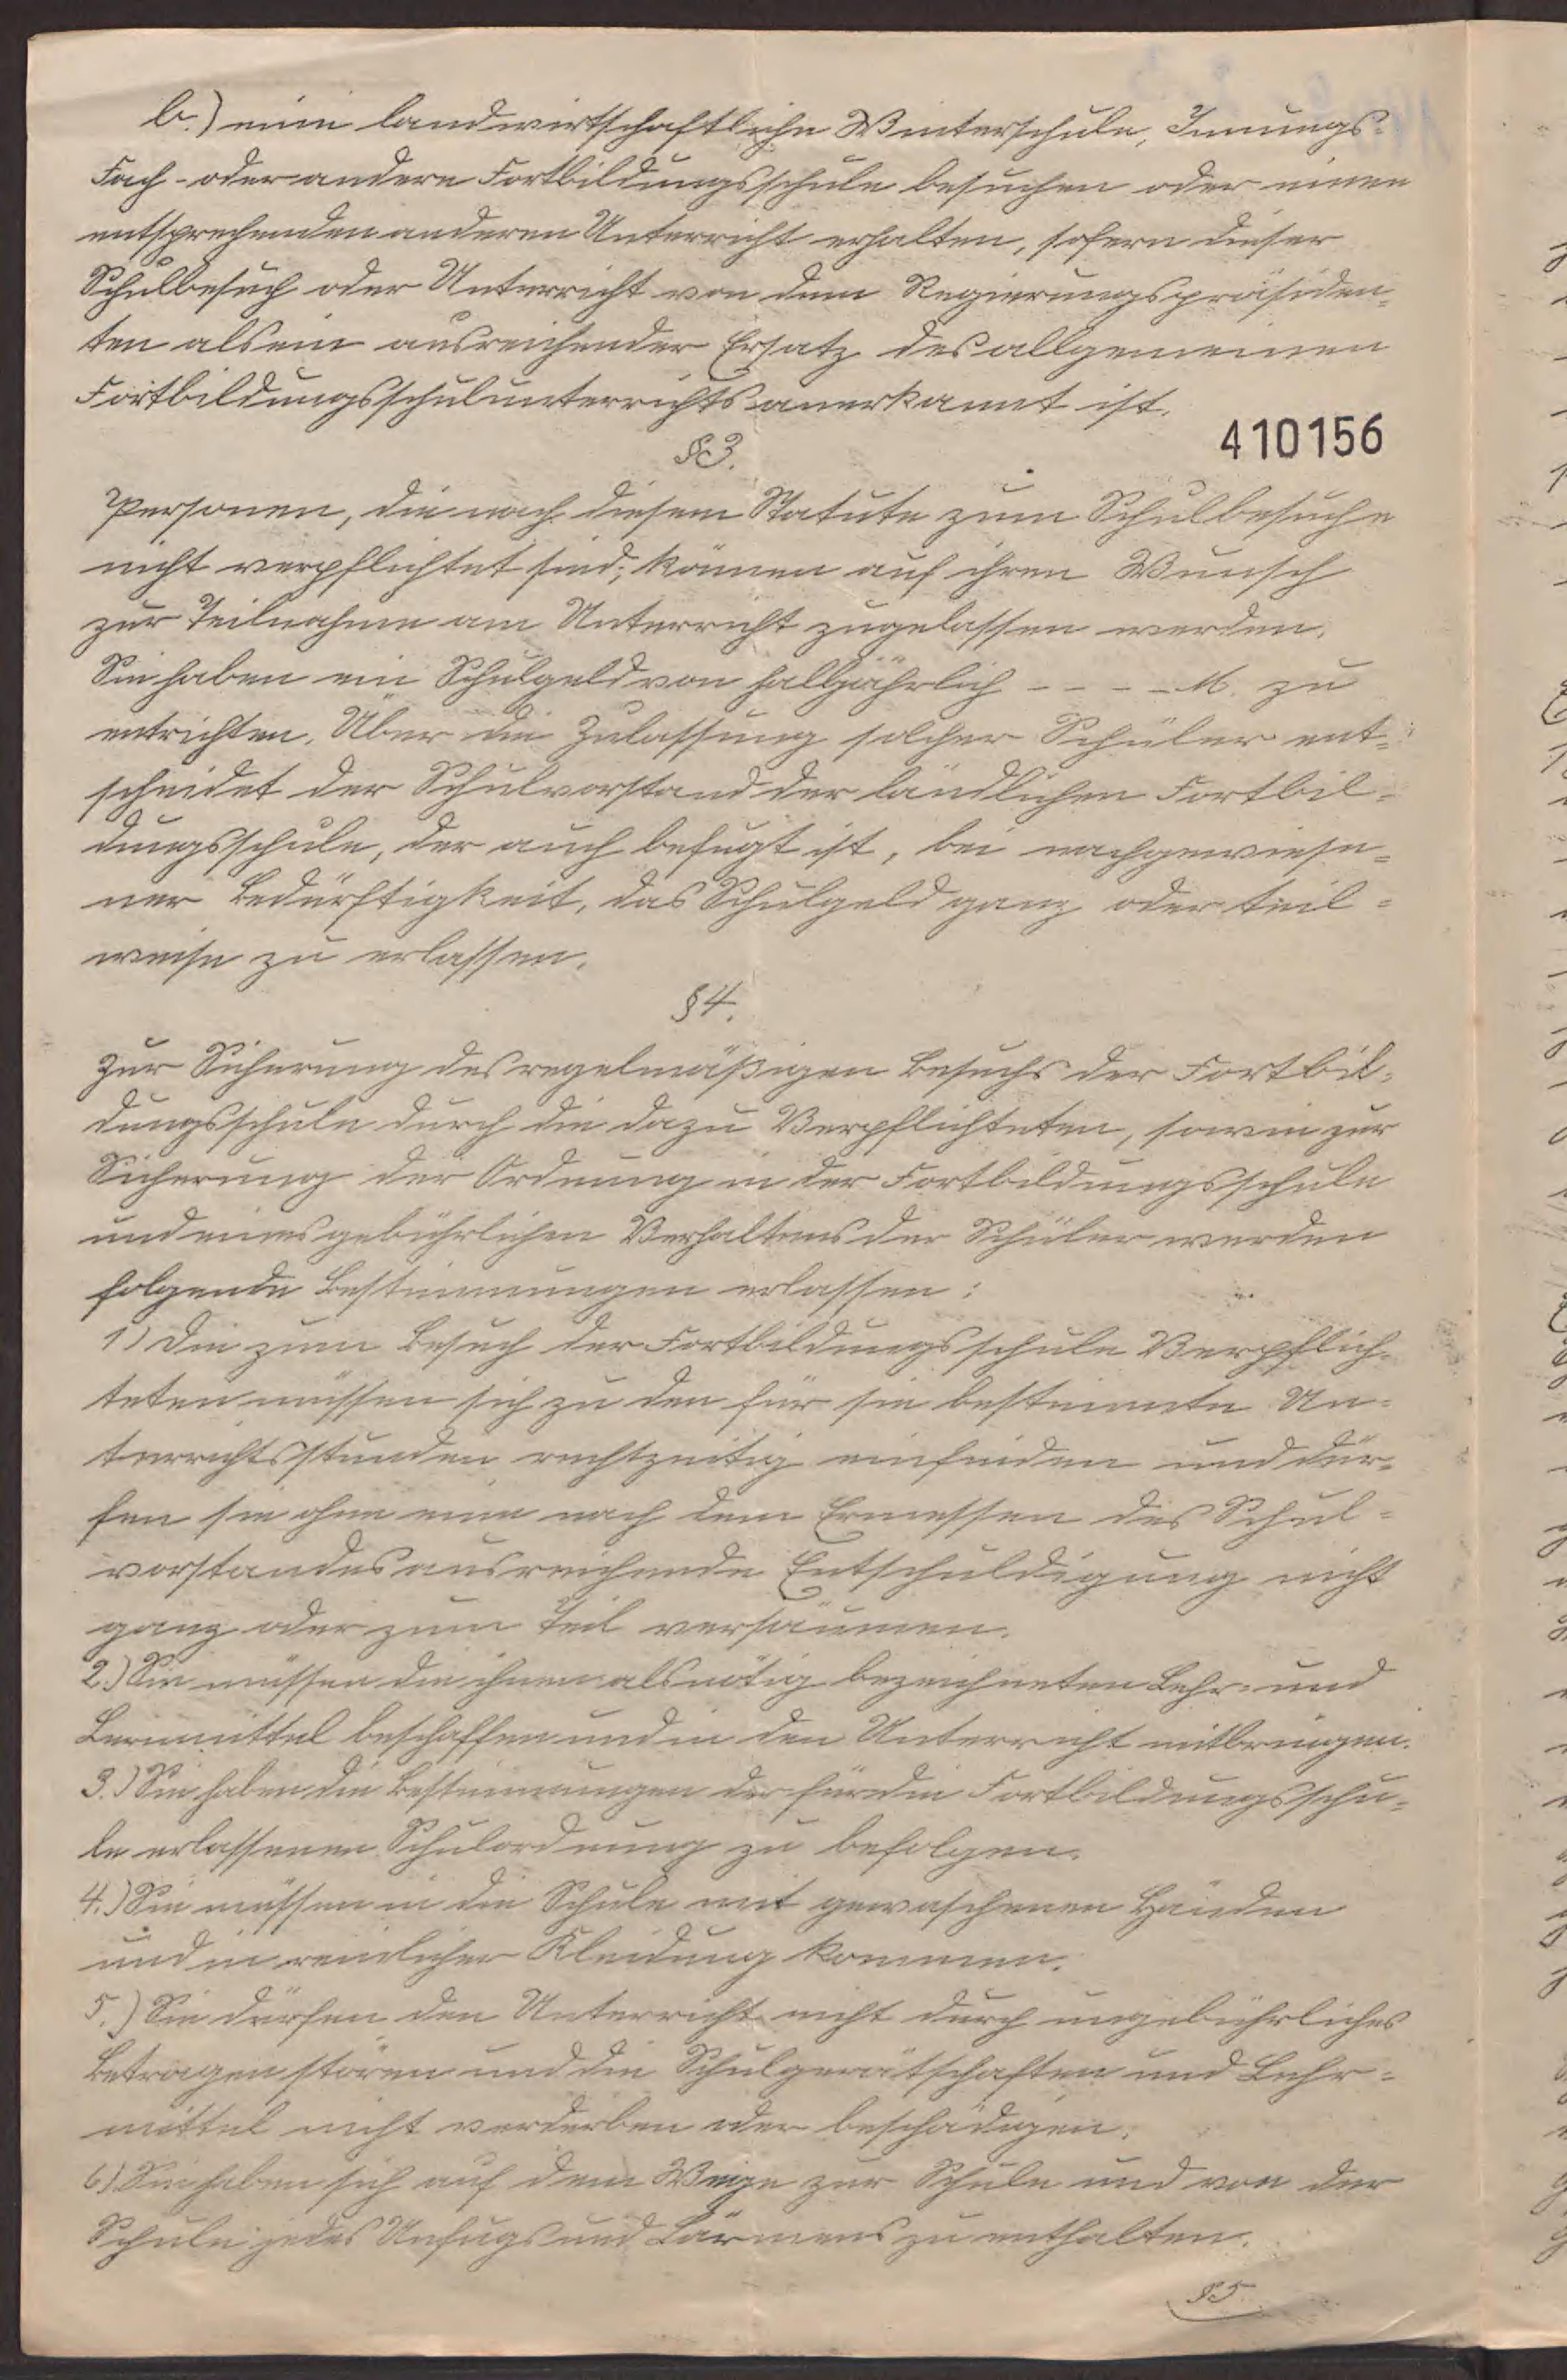 b.) eine landwirtschaftliche Winterschule, Innungs-
Fach- oder andere Fortbildungsschule besuchen oder einen
entsprechenden anderen Unterricht erhalten, sofern dieser
Schulbesuch oder Unterricht von dem Regierungspräsiden-
ten als ein ausreichender Ersatz des allgemeinen
Fortbildungsschulunterrichts anerkannt ist.
410156
§ 3.
Personen, die nach diesem Statute zum Schulbesuche
nicht verpflichtet sind, können auf ihren Wunsch
zur Teilnahme am Unterricht zugelassen werden.
Sie haben ein Schulgeld von halbjährlich - - - - M. zu
entrichten. Über die Zulassung solcher Schüler ent-
scheidet der Schulvorstand der ländlichen Fortbil-
dungsschule, der auch befugt ist, bei nachgewiese-
ner Bedürftigkeit, das Schulgeld ganz oder teil-
weise zu erlassen.
§ 4.
Zur Sicherung des regelmäßigen Besuchs der Fortbil-
dungsschule durch die dazu Verpflichteten, sowie zur
Sicherung der Ordnung in der Fortbildungsschule
und eines gebührlichen Verhaltens der Schüler werden
folgende Bestimmungen erlassen:
1) Die zum Besuch der Fortbildungsschule Verpflich-
teten müssen sich zu den für sie bestimmte Un-
terrichtsstunden rechtzeitig einfinden und dür-
fen sie ohne eine nach dem Ermessen des Schul-
vorstandes ausreichende Entschuldigung nicht
ganz oder zum Teil versäumen.
2.) Sie müssen die ihnen als nötig bezeichneten Lehr- und
Lernmittel beschaffen und in den Unterricht mitbringen.
3.) Sie haben die Bestimmungen der für die Fortbildungsschu-
le erlassenen Schulordnung zu befolgen.
4.) Sie müssen in die Schule mit gewaschenen Händen
und in reinlicher Kleidung kommen.
5.) Sie dürfen den Unterricht nicht durch ungebührliches
Betragen stören und die Schulgerätschaften und Lehr-
mittel nicht verderben oder beschädigen.
6) Sie haben sich auf dem Wege zur Schule und von der
Schule jedes Unfugs und Lärmens zu enthalten.
§ 5.